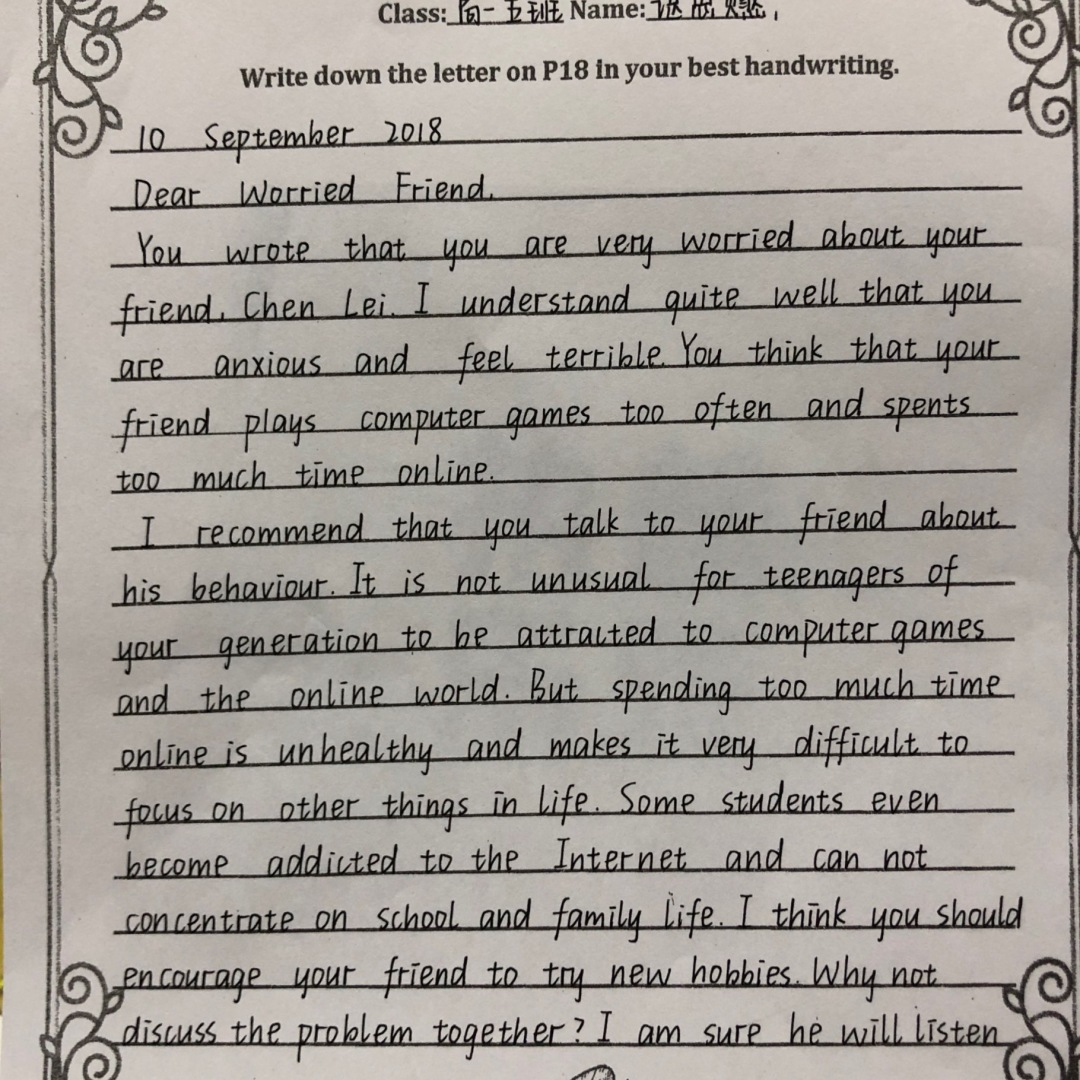 Class: 高一五班 Name:
Write down the letter on P18 in your best handwriting.
10 September 2018
Dear Worried Friend,
You wrote that you are very worried about your
friend, Chen Lei. I understand quite well that you
are anxious and feel terrible. You think that your
friend plays computer games too often and spents
too much time online.
I recommend that you talk to your friend about
his behaviour. It is not unusual for teenagers of
your generation to be attracted to computer games
and the online world. But spending too much time
online is unhealthy and makes it very difficult to
focus on other things in life. Some students even
become addicted to the Internet and can not
concentrate on school and family life. I think you should
encourage your friend to try new hobbies. Why not
discuss the problem together? I am sure he will listen